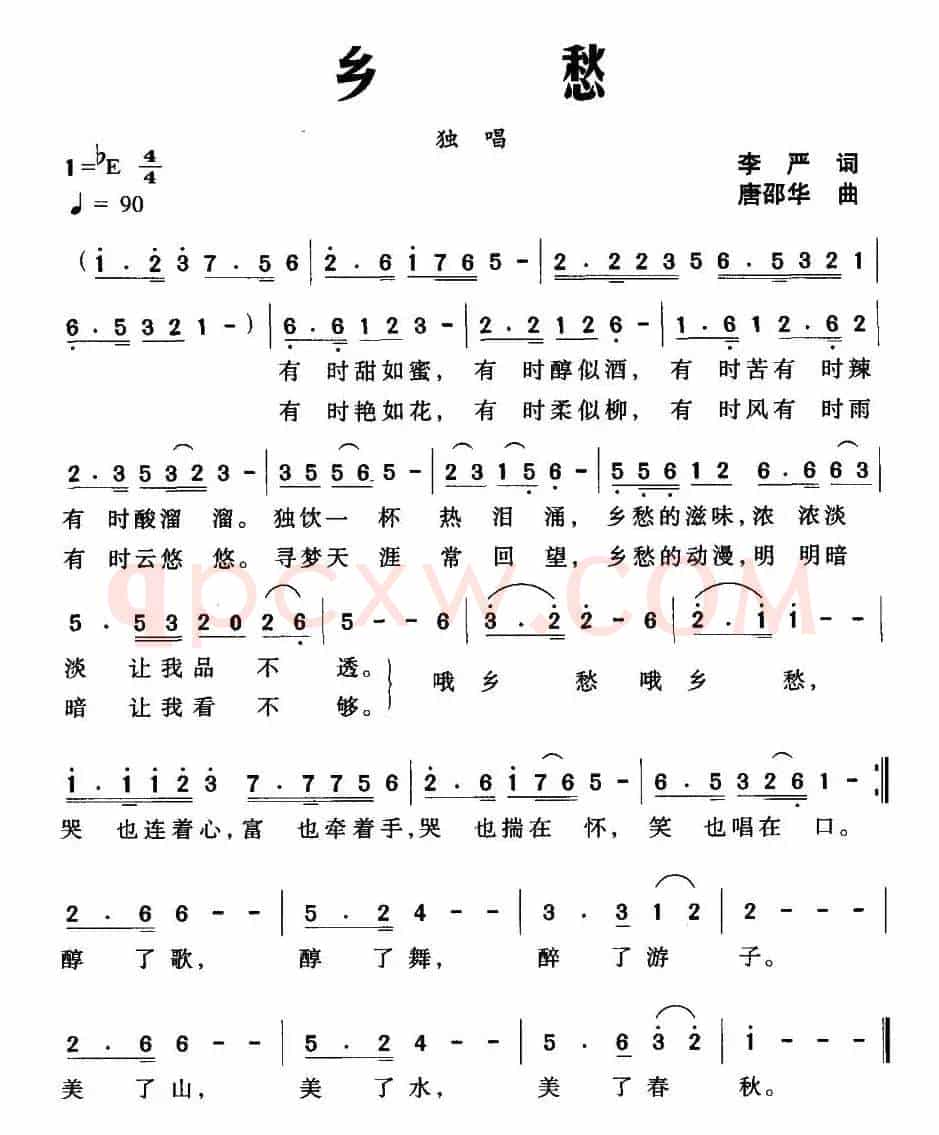 乡 愁
独 唱
1=♭E 4/4
李 严 词
♩= 90
唐邵华 曲
(1 . 2 3 7 . 5 6 | 2 . 6 1 7 6 5 - | 2 . 2 2 3 5 6 . 5 3 2 1 |
6 . 5 3 2 1 - ) | 6 . 6 1 2 3 - | 2 . 2 1 2 6 - | 1 . 6 1 2 . 6 2
有 时甜如蜜, 有 时醇似酒, 有 时苦有 时辣
有 时艳如花, 有 时柔似柳, 有 时风有 时雨
2 . 3 5 3 2 3 - | 3 5 5 6 5 - | 2 3 1 5 6 - | 5 5 6 1 2 6 . 6 6 3 |
有 时酸溜 溜。 独饮一 杯 热 泪 涌, 乡愁的滋味,浓 浓淡
有 时云悠 悠。 寻梦天 涯 常 回 望, 乡愁的动漫,明 明暗
qpcxw.COM
5 . 5 3 2 0 2 6 | 5 - - 6 | 3 . 2 2 - 6 | 2 . 1 1 - - |
淡 让我品 不 透。 哦乡 愁 哦 乡 愁,
暗 让我看 不 够。
1 . 1 1 2 3 7 . 7 7 5 6 | 2 . 6 1 7 6 5 - | 6 . 5 3 2 6 1 - :‖
哭 也连着心,富 也牵着手,哭 也揣在 怀, 笑 也唱在 口。
2 . 6 6 - - | 5 . 2 4 - - | 3 . 3 1 2 | 2 - - - |
醇 了歌, 醇 了舞, 醉 了游 子。
2 . 6 6 - - | 5 . 2 4 - - | 5 . 6 3 2 | 1 - - - ‖
美 了山, 美 了水, 美 了春 秋。